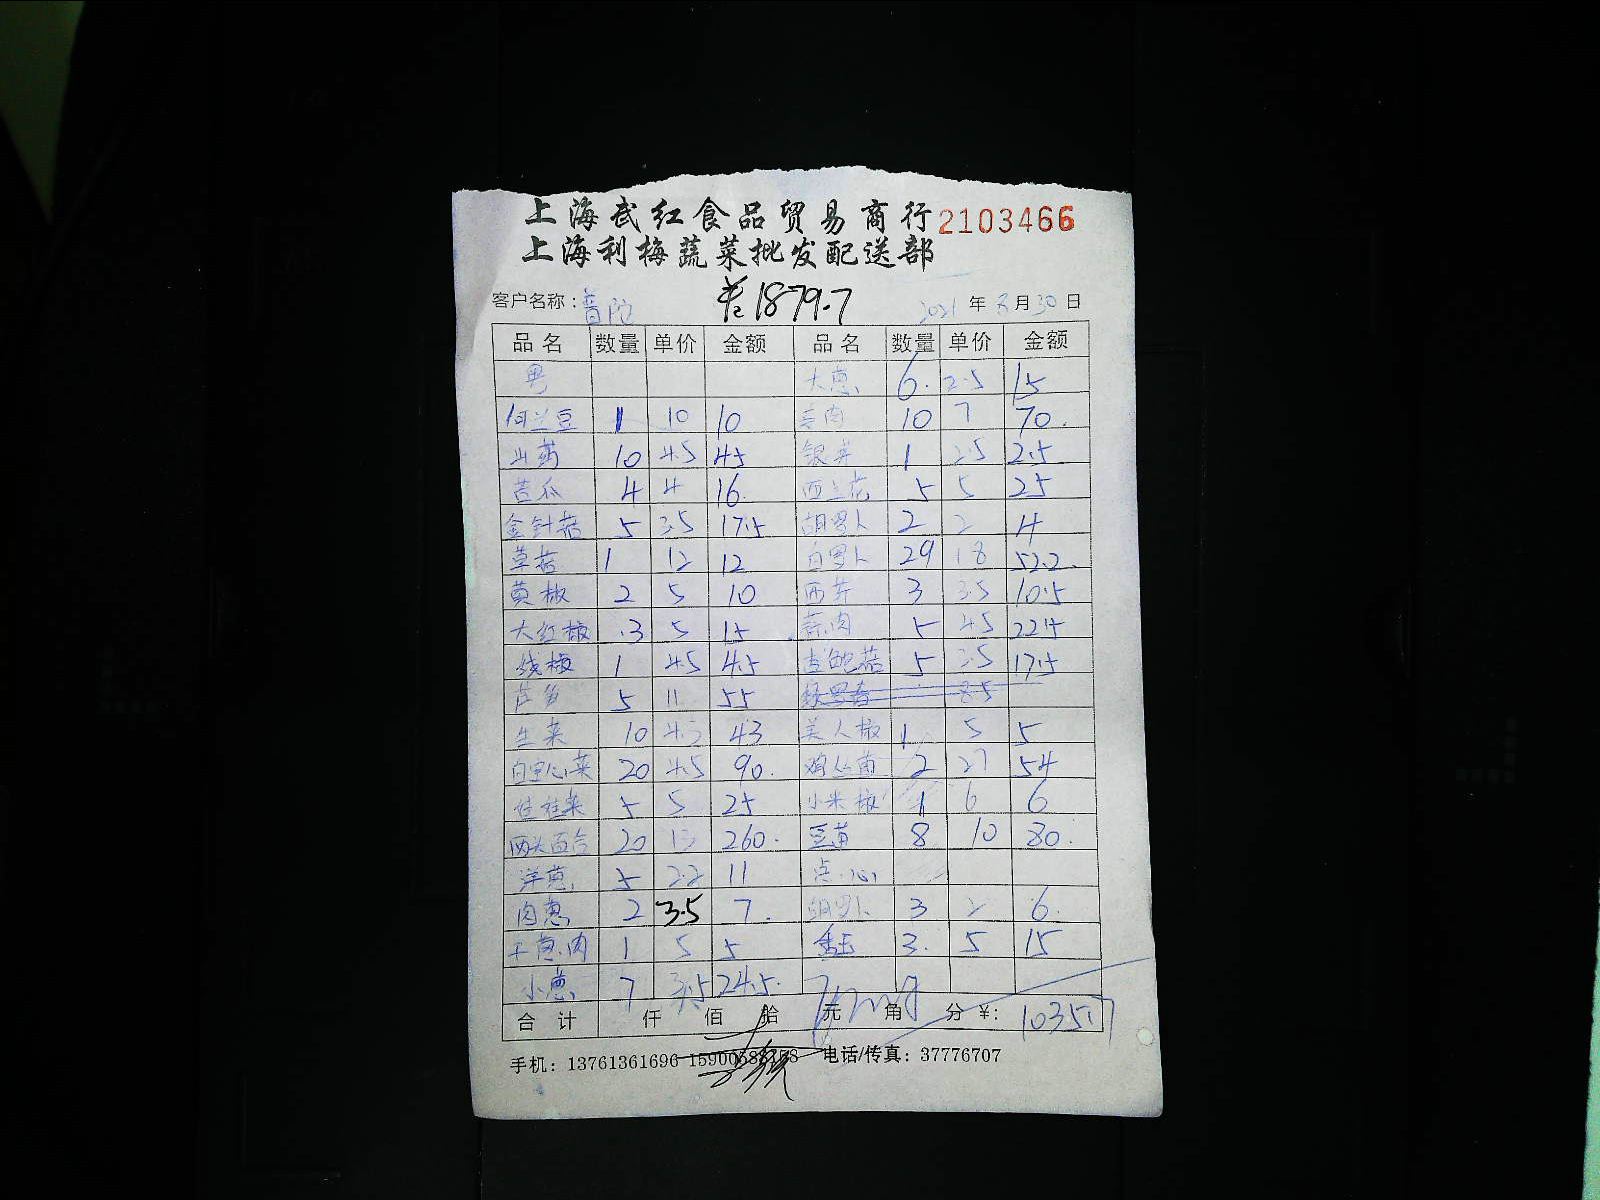 上海武红食品贸易商行 2103466
上海利梅蔬菜批发配送部
客户名称：普陀 共1879.7 2021年 月30日
品名 数量 单价 金额 品名 数量 单价 金额
大葱 6. 2.5 15
何兰豆 1 10 10 肉 10 7 70.
山药 10 4.5 45 银芽 1 2.5 2.5
苦瓜 4 4 16. 西兰花 5 5 25
金针菇 5 3.5 17.5 胡罗卜 2 2 4
草菇 1 12 12 白罗卜 29 1.8 52.2
黄椒 2 5 10 西芹 3 3.5 10.5
大红椒 3 5 15 蒜肉 5 4.5 22.5
线椒 1 4.5 4.5 杏鲍菇 5 3.5 17.5
芦笋 5 11 55 8.5
生菜 10 4.3 43 美人椒 1 5 5
白空心菜 20 4.5 90. 鸡丛菌 2 27 54
娃娃菜 5 5 25 小米椒 1 6 6
两头百合 20 13 260. 豆苗 8 10 80.
洋葱 5 2.2 11 点心
肉葱 2 3.5 7. 胡罗卜 3 2 6.
干葱肉 1 5 5 3. 5 15
小葱 7 3.5 24.5.
合计 仟 佰 拾 元 角 分 ¥: 1035.7
手机：13761361696 电话/传真：37776707